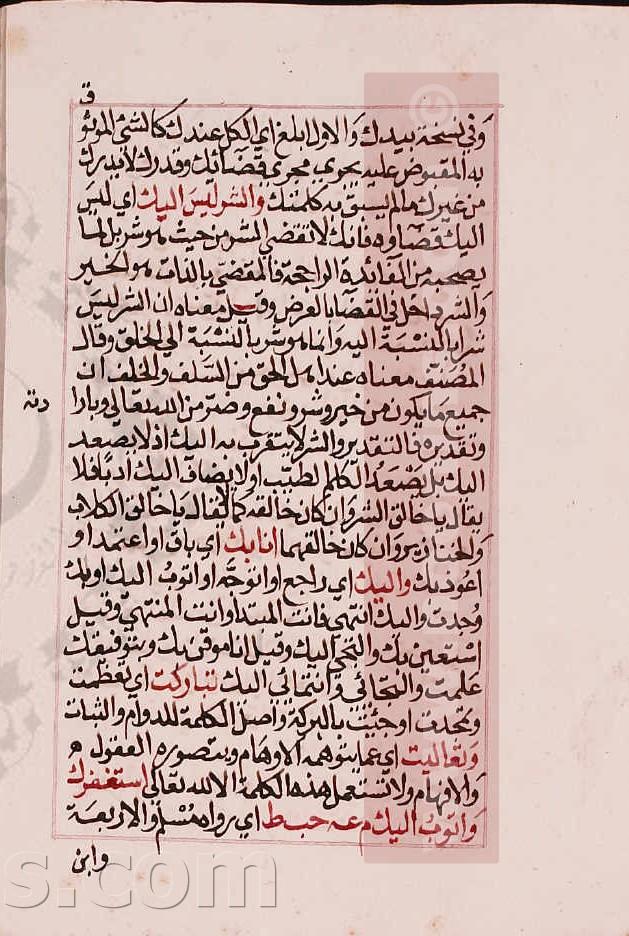 ق
وفي نسخة بيديك والاول ابلغ اي الكل عندك كالشئ الموثوق
به المقبوض عليه يجري مجري قضائك وقدرك لا يدرك
من غيرك مالم يسبق به كلمتك والشر ليس اليك اي ليس
اليك قضاوه فانك لا تقضي الشر من حيث هو شر بل لما
يصحبه من الفائدة الراجحة فالمقضي بالذات هو الخير
والشر داخل في القضا بالعرض وقيل معناه ان الشر ليس
شرا بالنسبة اليه وانما هو شر بالنسبة الي الخلق وقال
المصنف معناه عند اهل الحق من السلف والخلف ان
جميع ما يكون من خير وشر ونفع وضر من الله تعالي وبارا
دته
وتقديره فالتقدير والشر لا يتقرب به اليك اذ لا يصعد
اليك بل يصعد الكلم الطيب او لا يضاف اليك ادبا فلا
يقال يا خالق الشر وان كان خالقه كما لا يقال يا خالق الكلاب
والخنازير وان كان خالقهما انا بك اي باق او اعتمد او
اعوذ بك واليك اي راجع او اتوجه او اتوب اليك او بك
وجدت واليك انتهي فانت المبتدا وانت المنتهي وقيل
استعين بك والتجي اليك وقيل انا موقن بك وبتوفيقك
علمت والتجائي وانتمائي اليك تباركت اي تعظمت
وتمجدت او جئت بالبركة واصل الكلمة للدوام والثبات
وتعاليت اي عما يتوهمه الاوهام ويتصوره العقول
والافهام ولا تستعمل هذه الكلمة الا لله تعالي استغفرك
واتوب اليك م عه حب ط اي رواه مسلم والاربعة
وابن
s.com